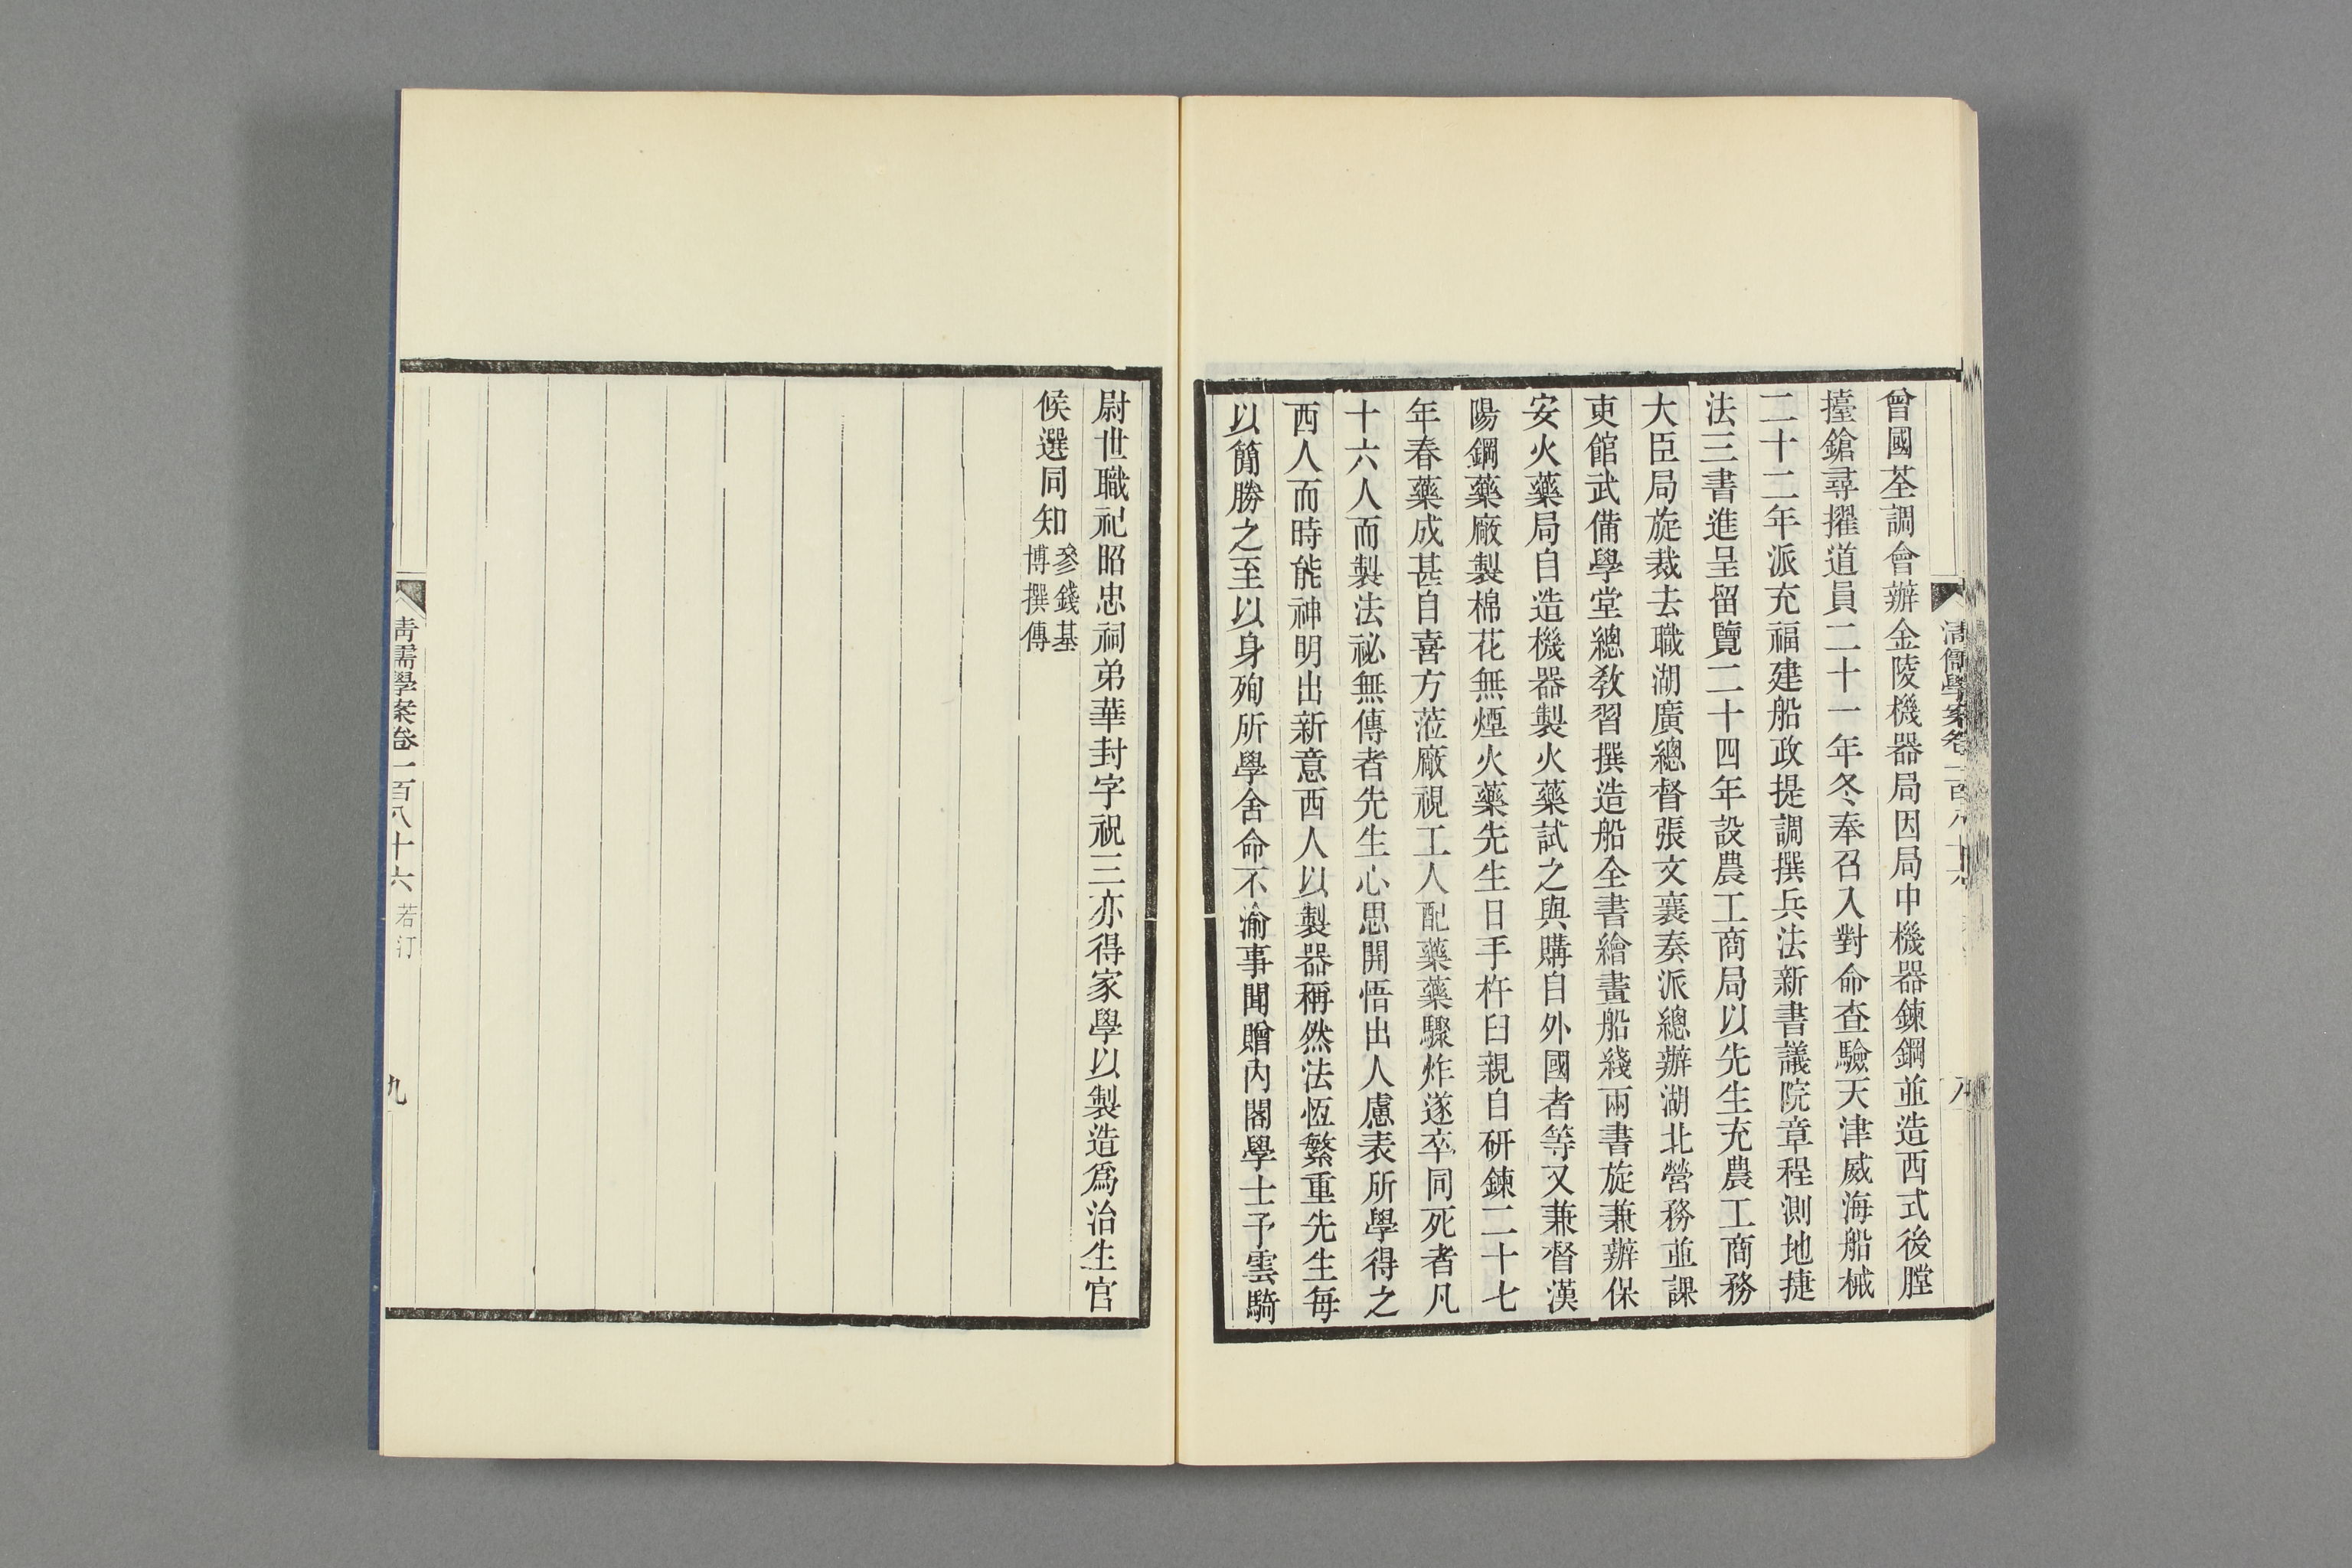 曾國荃調會辦金陵機器局因局中機器鍊鋼並造西式後膛
擡鎗尋擢道員二十一年冬奉召入對命查驗天津威海船械
二十二年派充福建船政提調撰兵法新書議院章程測地捷
法三書進呈留覽二十四年設農工商局以先生充農工商務
大臣局旋裁去職湖廣總督張文襄奏派總辦湖北營務並課
吏館武備學堂總敎習撰造船全書繪畫船綫兩書旋兼辦保
安火藥局自造機器製火藥試之與購自外國者等又兼督漢
陽鋼藥廠製棉花無煙火藥先生日手杵臼親自研鍊二十七
年春藥成甚自喜方蒞廠視工人配藥藥驟炸遂卒同死者凡
十六人而製法祕無傳者先生心思開悟出人慮表所學得之
西人而時能神明出新意西人以製器稱然法恆繁重先生每
以簡勝之至以身殉所學舍命不渝事聞贈內閣學士予雲騎
清儒學案卷一百八十六
八
尉世職祀昭忠祠弟華封字祝三亦得家學以製造爲治生官
候選同知
參錢基
博撰傳
清儒學案卷一百八十六 若汀
九